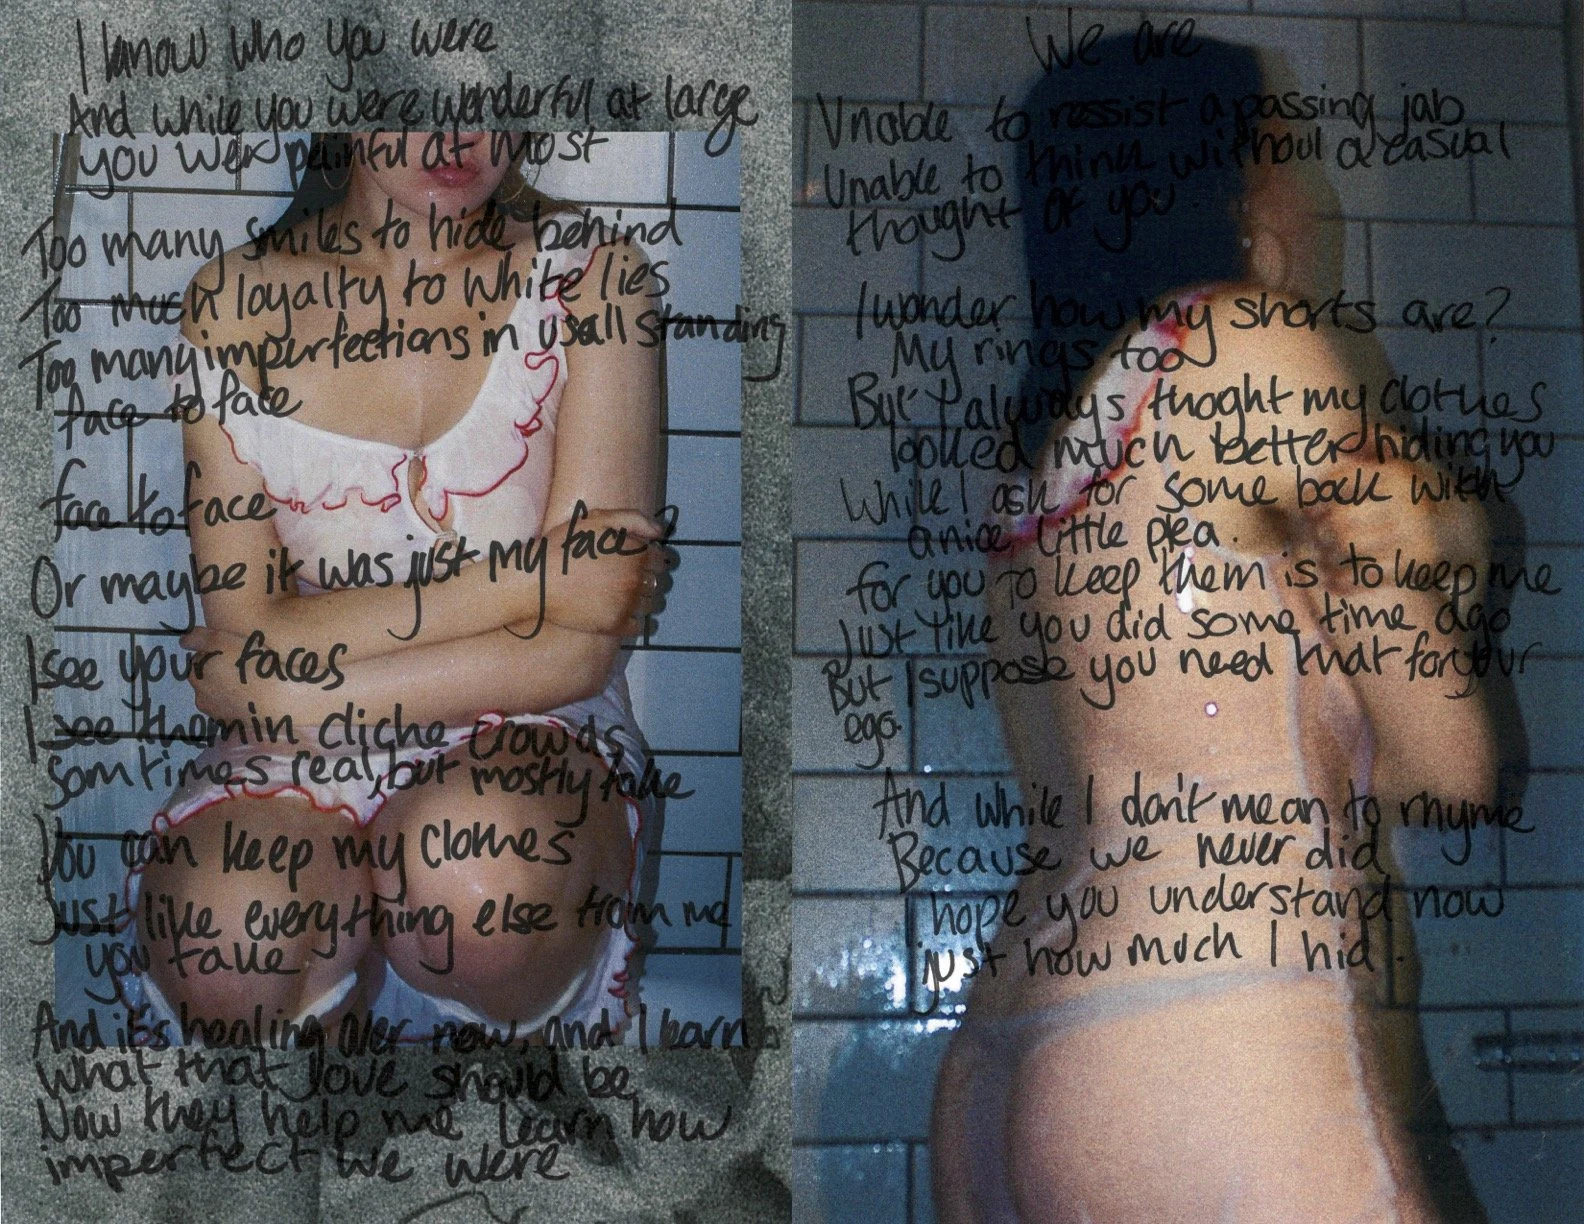 I know who you were
And while you were wonderful at large
you were painful at most
Too many smiles to hide behind
Too much loyalty to white lies
Too many imperfections in us all standing
face to face
face to face
Or maybe it was just my face?
I see your faces
I see them in cliche crowds
somtimes real, but mostly fake
You can keep my clothes
Just like everything else from me
you take
And it's healing over now, and I learn
what that love should be
Now they help me learn how
imperfect we were
We are
Unable to ressist a passing jab
Unable to think without a casual
thought of you.
I wonder how my shorts are?
My rings too
But I always thoght my clothes
looked much better hiding you
While I ask for some back with
a nice little plea.
for you to keep them is to keep me
Just like you did some time ago
But I suppose you need that for your
ego.
And while I don't mean to rhyme
Because we never did
hope you understand now
just how much I hid.